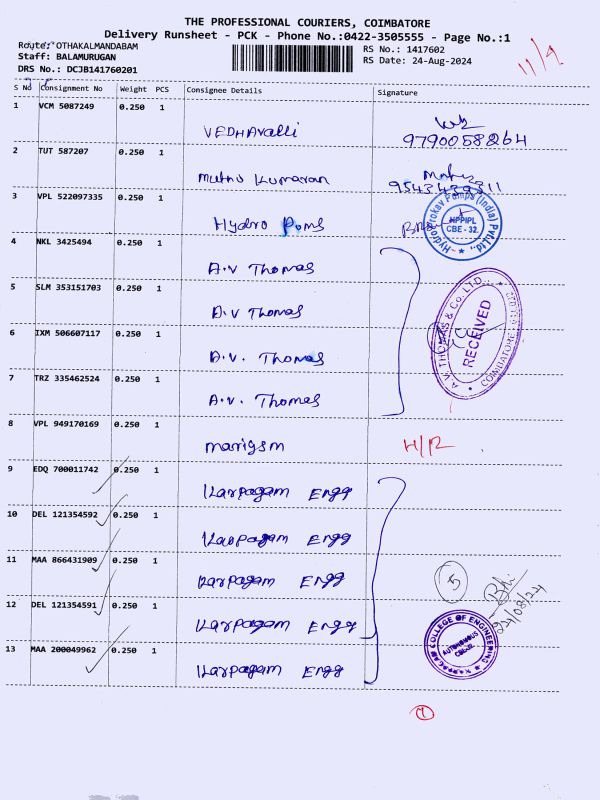 THE PROFESSIONAL COURIERS, COIMBATORE
Delivery Runsheet - PCK - Phone No.:0422-3505555 - Page No.:1
Route: OTHAKALMANDABAM
RS No.: 1417602
Staff: BALAMURUGAN
RS Date: 24-Aug-2024
DRS No.: DCJB141760201
11/9
S No Consignment No Weight PCS Consignee Details Signature
1 VCM 5087249 0.250 1
VEDHAvalli
9790058264
2 TUT 587207 0.250 1
Muthu Kumaran
9543439311
3 VPL 522097335 0.250 1
Hydro Poms
HPPIPL
CBE - 32.
4 NKL 3425494 0.250 1
A.V Thomas
5 SLM 353151703 0.250 1
A.V Thomas
A.V. THOMAS & Co. LTD.
RECEIVED
COIMBATORE
6 IXM 506607117 0.250 1
A.V. Thomas
7 TRZ 335462524 0.250 1
A.V. Thomas
8 VPL 949170169 0.250 1
marigsm
H/R
9 EDQ 700011742 0.250 1
Karpagam Engg
10 DEL 121354592 0.250 1
Karpagam Engg
11 MAA 866431909 0.250 1
Karpagam Engg
5
24/08/24
12 DEL 121354591 0.250 1
Karpagam Engg
KARPAGAM COLLEGE OF ENGINEERING
AUTONOMOUS
CBE-32.
13 MAA 200049962 0.250 1
Karpagam Engg